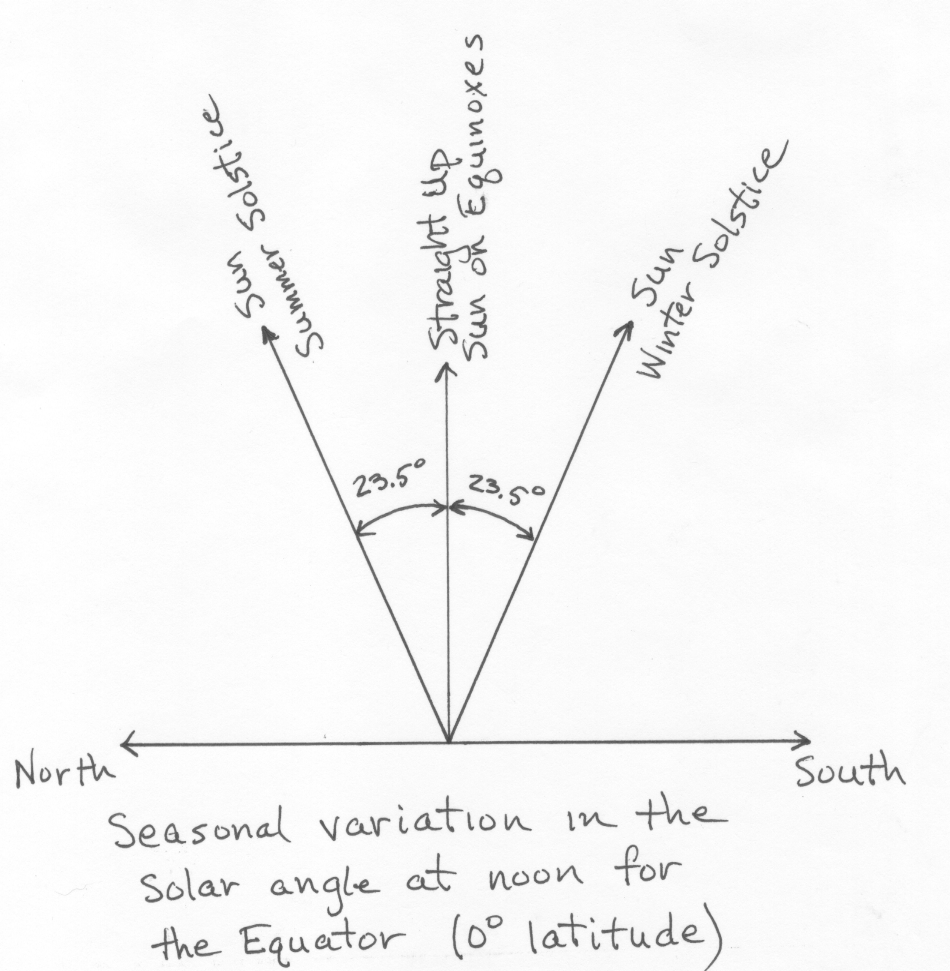 Sun
Summer Solstice
Straight Up
Sun on Equinoxes
Sun
Winter Solstice
23.5°
23.5°
North
South
Seasonal variation in the
Solar angle at noon for
the Equator (0° latitude)